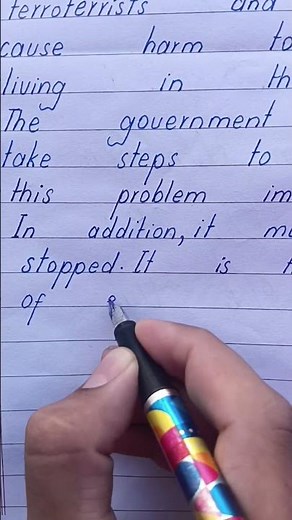 terroterrists and
cause harm to
living in th
The government
take steps to
this problem im
In addition, it mu
stopped. It is
of